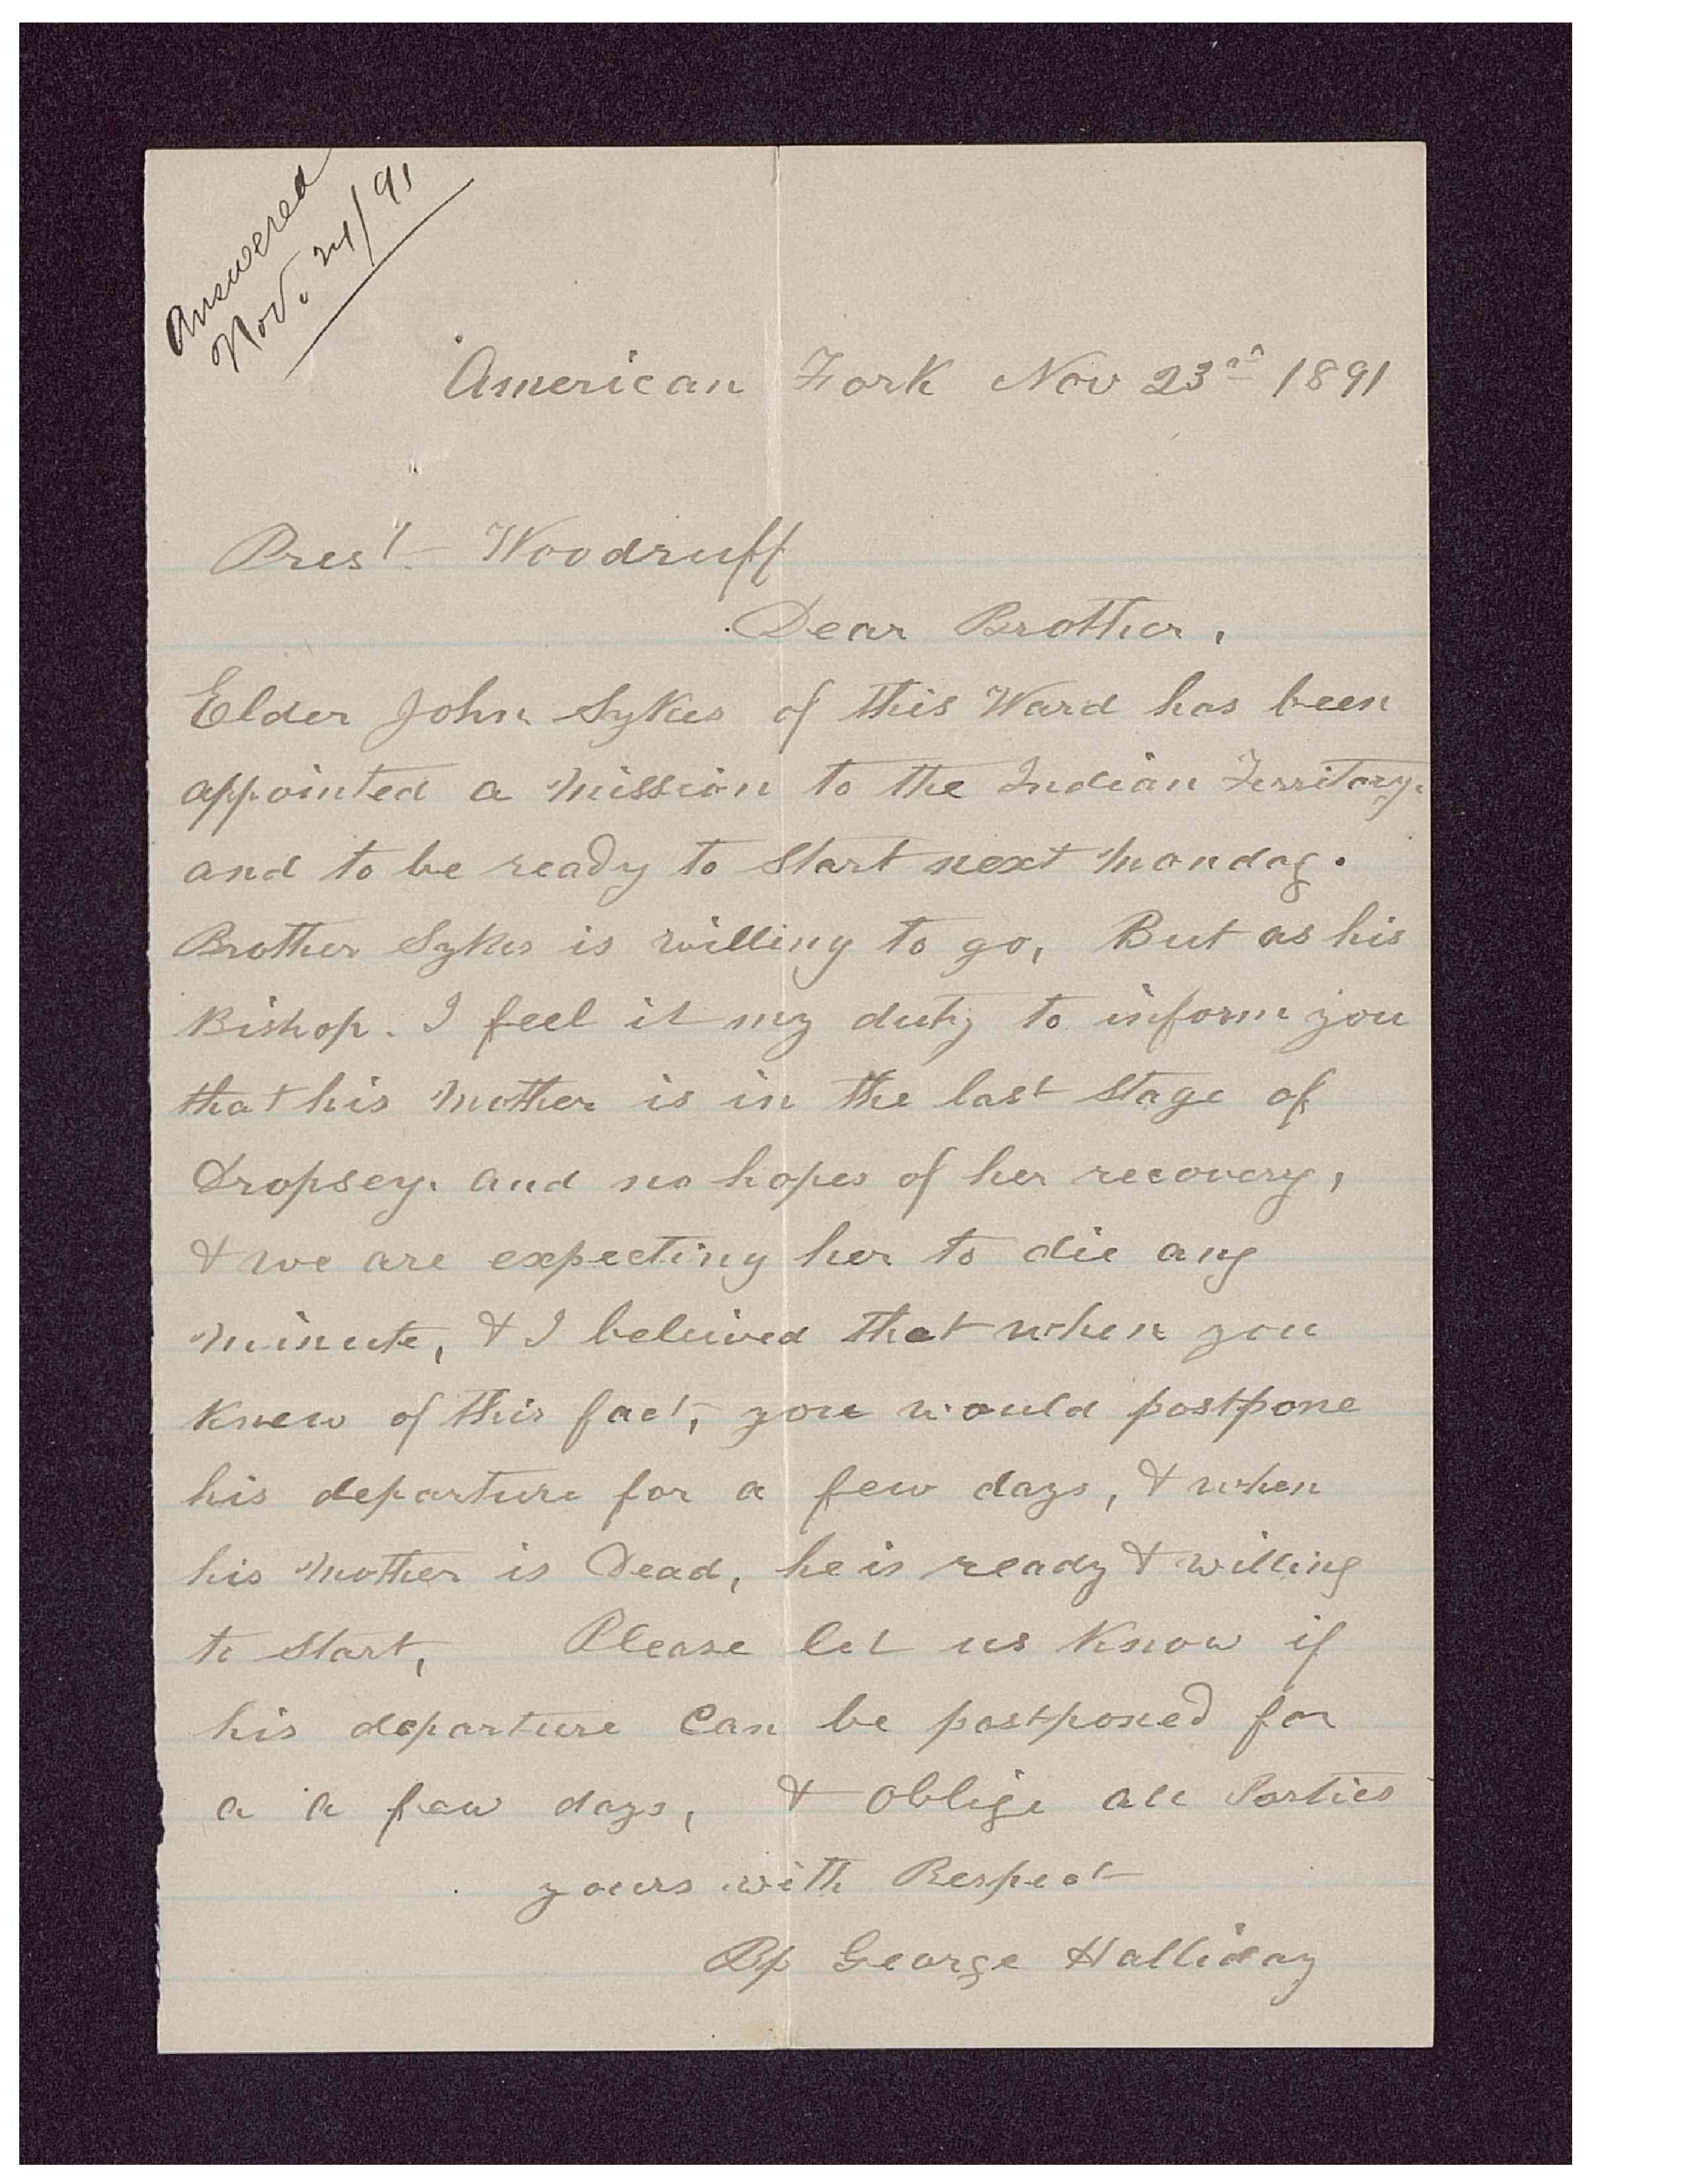 Answered
Nov. 24/91
American Fork Nov 23rd 1891
Prest Woodruff
Dear Brother,
Elder John Sykes of this Ward has been
appointed a Mission to the Indian Territory.
and to be ready to Start next Monday.
Brother Sykes is willing to go, But as his
Bishop. I feel it my duty to inform you
that his Mother is in the last Stage of
Dropsey. and no hopes of her recovery,
& we are expecting her to die any
Minute, & I beleived that when you
Knew of this fact, you would postpone
his departure for a few days, & when
his Mother is Dead, he is ready & willing
to Start, Please let us Know if
his departure Can be postponed for
a a few days, & Oblige all Parties
yours with Respect
Bp George Halliday